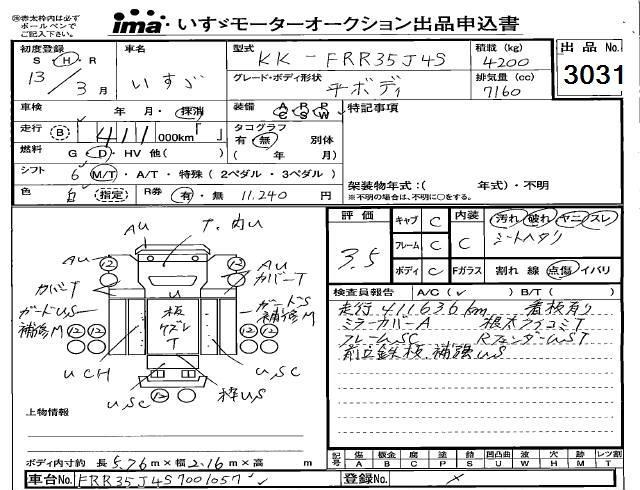 ※赤太枠内は必ず
ボールペンで
ご記入下さい。
ima・いすゞモーターオークション出品申込書
初度登録 S・H・R 13/3月
車名 いすゞ
型式 KK-FRR35J4S
積載 (kg) 4200
出品 No. 3031
グレード・ボディ形状 平ボディ
排気量 (cc) 7160
車検 年 月・抹消
装備 AC PS PW
特記事項
走行 B 411,000km「 」
タコグラフ 有・無 別体 ( 年 月)
燃料 G・D・HV 他( )
シフト 6 M/T・A/T・特殊 (2ペダル・3ペダル)
架装物年式:( 年式)・不明
※不明の場合は、不明に○をする。
色 白 (指定) R券 有・無 11,240 円
評価 3.5
キャブ C
内装 C
汚れ 破れ ヤニ スレ
シートヘタリ
フレーム C
ボディ C
Fガラス 割れ 線 点傷 イバリ
検査員報告 A/C(✓) B/T( )
走行411,636km 看板有り
ミラーカバーA 根太フイコミT
フレームUSC RフェンダーUST
前立鉄板、補強US
AU
T.内U
AU
AU
カバーT
カバーT
ガードUS
補修M
U
板
ケズレ
T
ガードS
補修M
UCH
USC
USC
枠US
12
上物情報
ボディ内寸約 長 5.76m×幅 2.16m×高 m
記号 傷 A 板金 B 腐 C 塗 P サビ S 凹凸曲 U 波 W 穴 H 跡 M レツ割 T
車台No. FRR35J4S7001057
登録No. ×